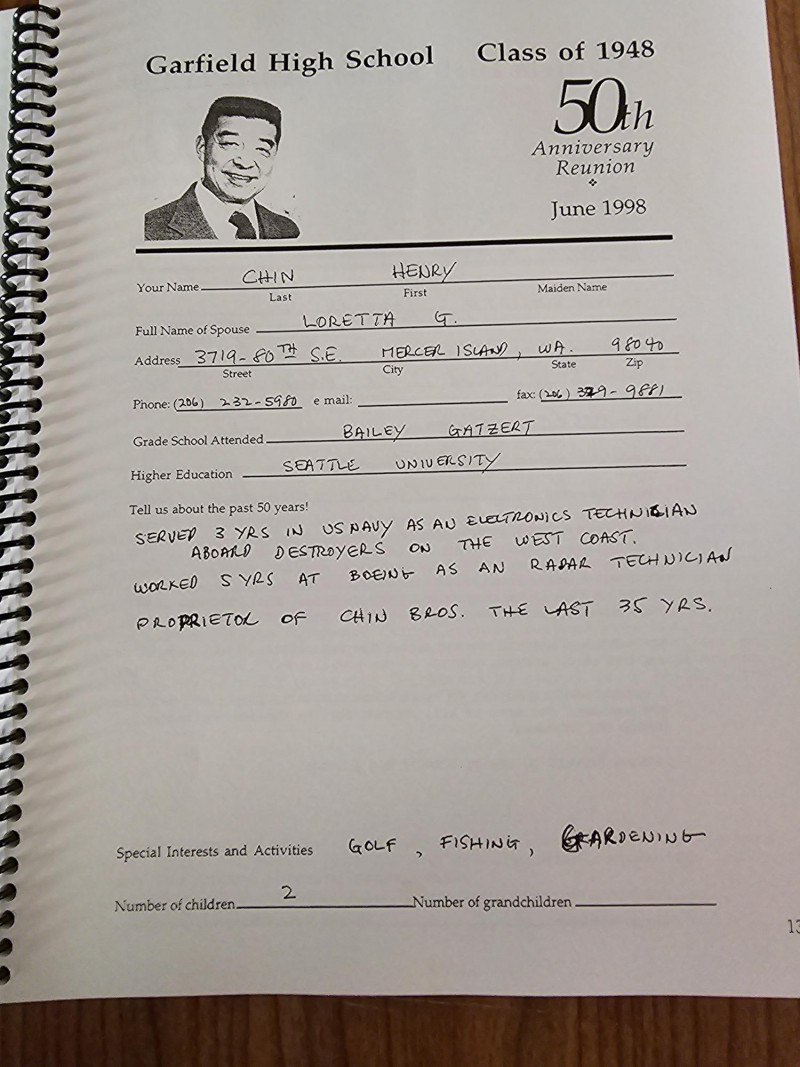 Garfield High School Class of 1948
50th
Anniversary
Reunion
June 1998
Your Name CHIN HENRY
Last First Maiden Name
Full Name of Spouse LORETTA G.
Address 3719-80TH S.E. MERCER ISLAND, WA. 98040
Street City State Zip
Phone: (206) 232-5980 e mail: fax: (206) 329-9881
Grade School Attended BAILEY GATZERT
Higher Education SEATTLE UNIVERSITY
Tell us about the past 50 years!
SERVED 3 YRS IN US NAVY AS AN ELECTRONICS TECHNICIAN
ABOARD DESTROYERS ON THE WEST COAST.
WORKED 5 YRS AT BOEING AS AN RADAR TECHNICIAN
PROPRIETOR OF CHIN BROS. THE LAST 35 YRS.
Special Interests and Activities GOLF, FISHING, GARDENING
Number of children 2 Number of grandchildren